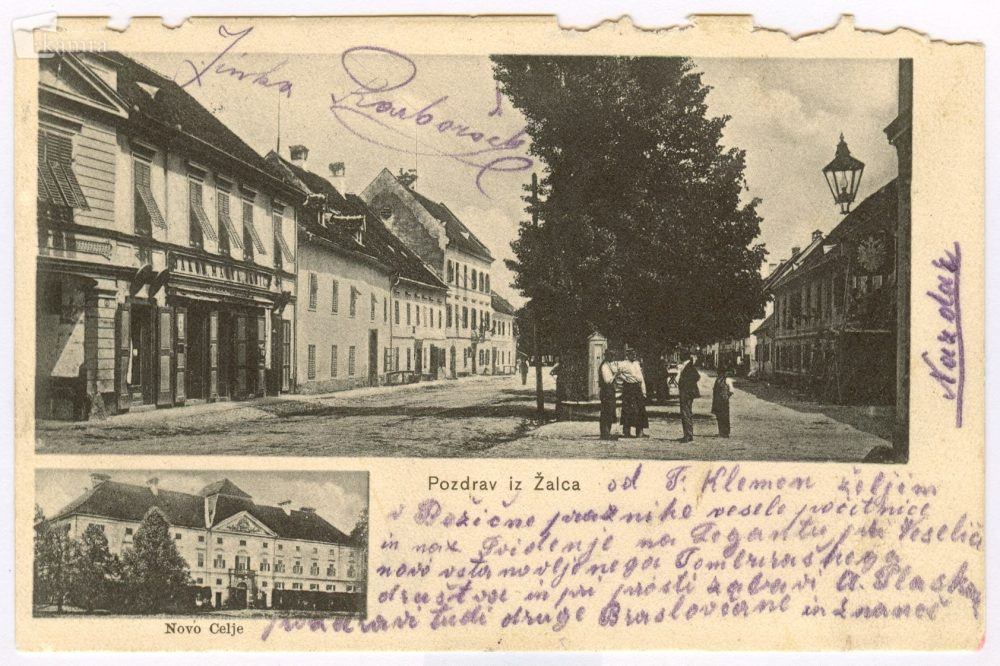 kamra
Pozdrav iz Žalca
od F. Klemen željim
v Božične praznike vesele počitnice
in nax Svidenje na Legantu pri Veselič
novo vstanovljenega Tamburaskega
drustva in pri prosti zabavi A. Plaskan
pozdravi tudi druge Braslovčane in znance
Nazdak
Novo Celje